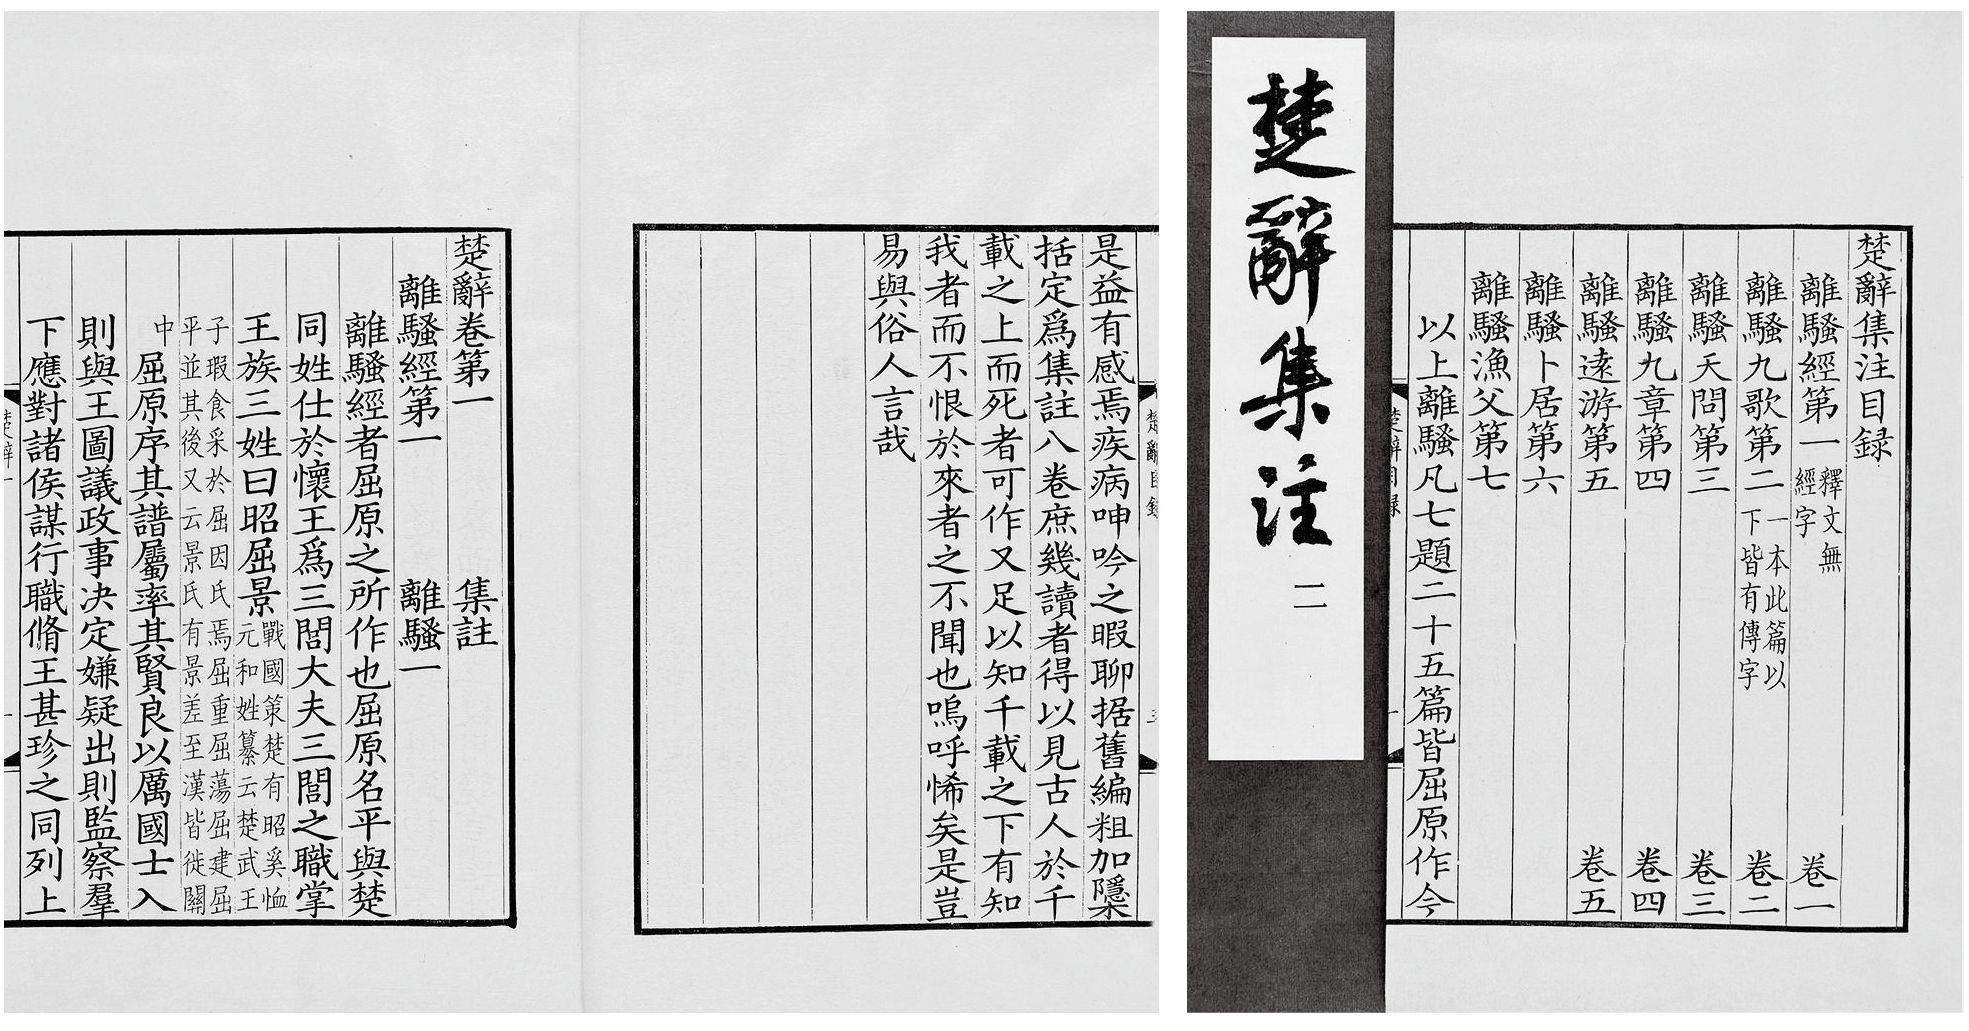 楚辭集注目録
離騷經第一釋文無經字 卷一
離騷九歌第二一本此篇以下皆有傳字 卷二
離騷天問第三 卷三
離騷九章第四 卷四
離騷逺游第五 卷五
離騷卜居第六
離騷漁父第七
以上離騷凡七題二十五篇皆屈原作今
楚辭目録 一
楚辭集注 二
楚辭目録
是益有感焉疾病呻吟之暇聊据舊編粗加隱
括定爲集註八卷庶幾讀者得以見古人於千
載之上而死者可作又足以知千載之下有知
我者而不恨於來者之不聞也嗚呼悕矣是豈
易與俗人言哉
楚辭卷第一 集註
離騷經第一 離騷一
離騷經者屈原之所作也屈原名平與楚
同姓仕於懷王爲三閭大夫三閭之職掌
王族三姓曰昭屈景戰國策楚有昭奚恤元和姓纂云楚武王
子瑕食采於屈因氏焉屈重屈蕩屈建屈平並其後又云景氏有景差至漢皆徙關
中屈原序其譜屬率其賢良以厲國士入
則與王圖議政事决定嫌疑出則監察羣
下應對諸侯謀行職脩王甚珍之同列上
楚辭一 一